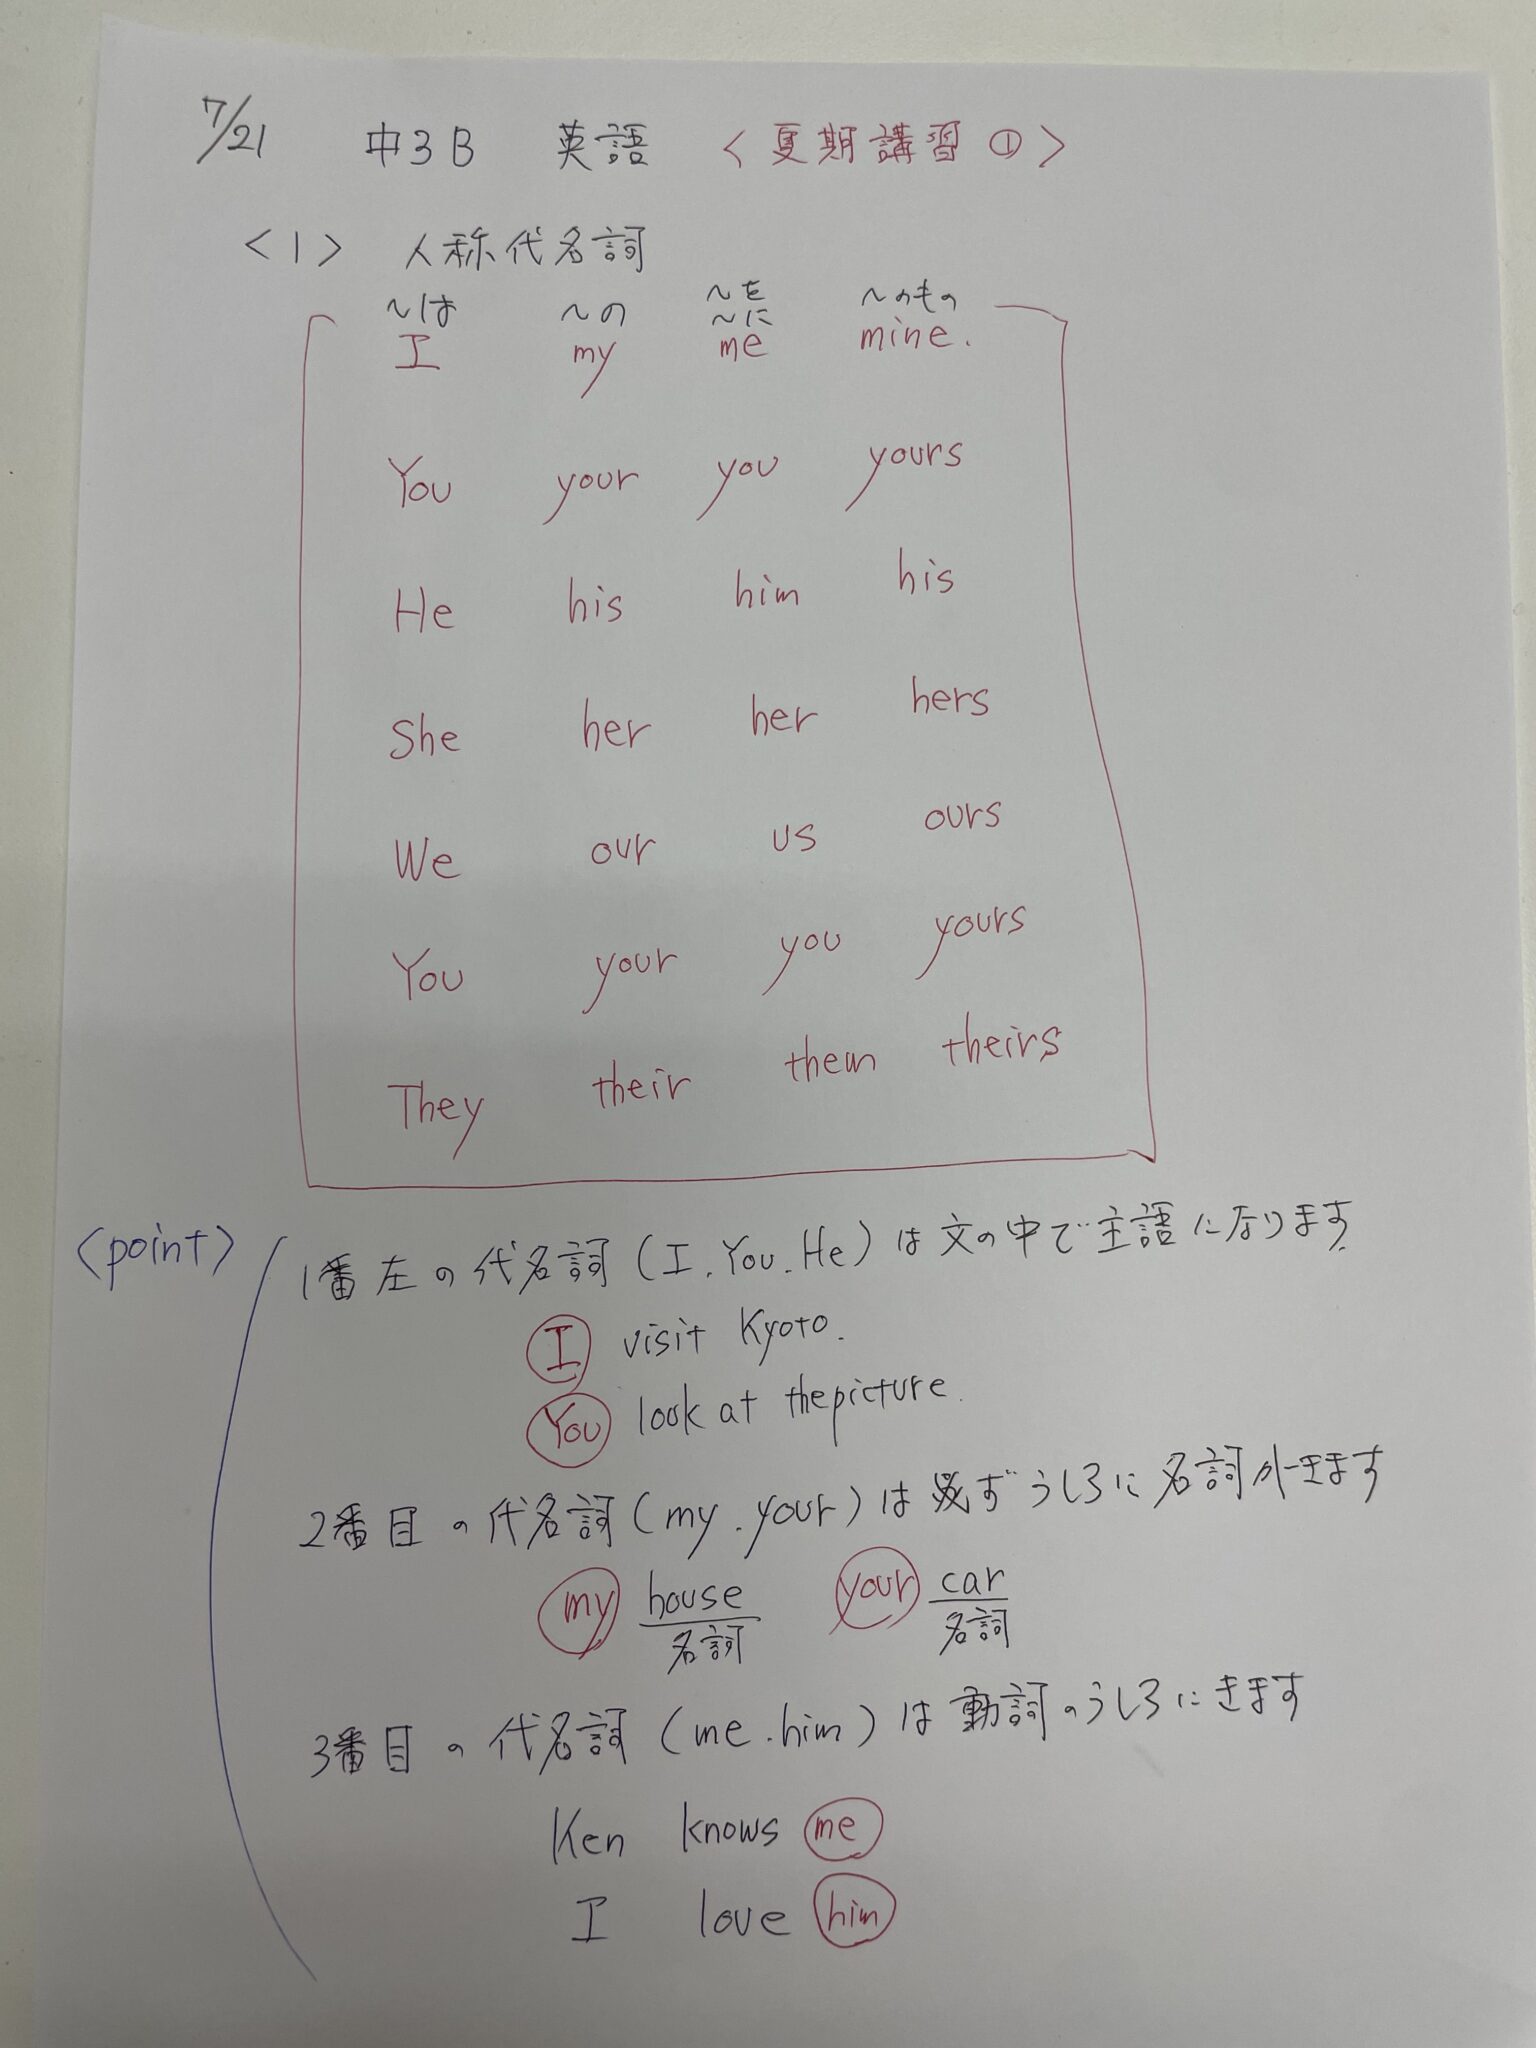 7/21 中3B 英語 <夏期講習①>
<1> 人称代名詞
～は ～の ～を ～に ～のもの
I my me mine.
You your you yours
He his him his
She her her hers
We our us ours
You your you yours
They their them theirs
<point>
1番左の代名詞(I.You.He)は文の中で主語になります.
I visit Kyoto.
You look at the picture.
2番目の代名詞(my.your)は必ずうしろに名詞がきます
my house your car
名詞 名詞
3番目の代名詞(me.him)は動詞のうしろにきます
Ken knows me
I love him